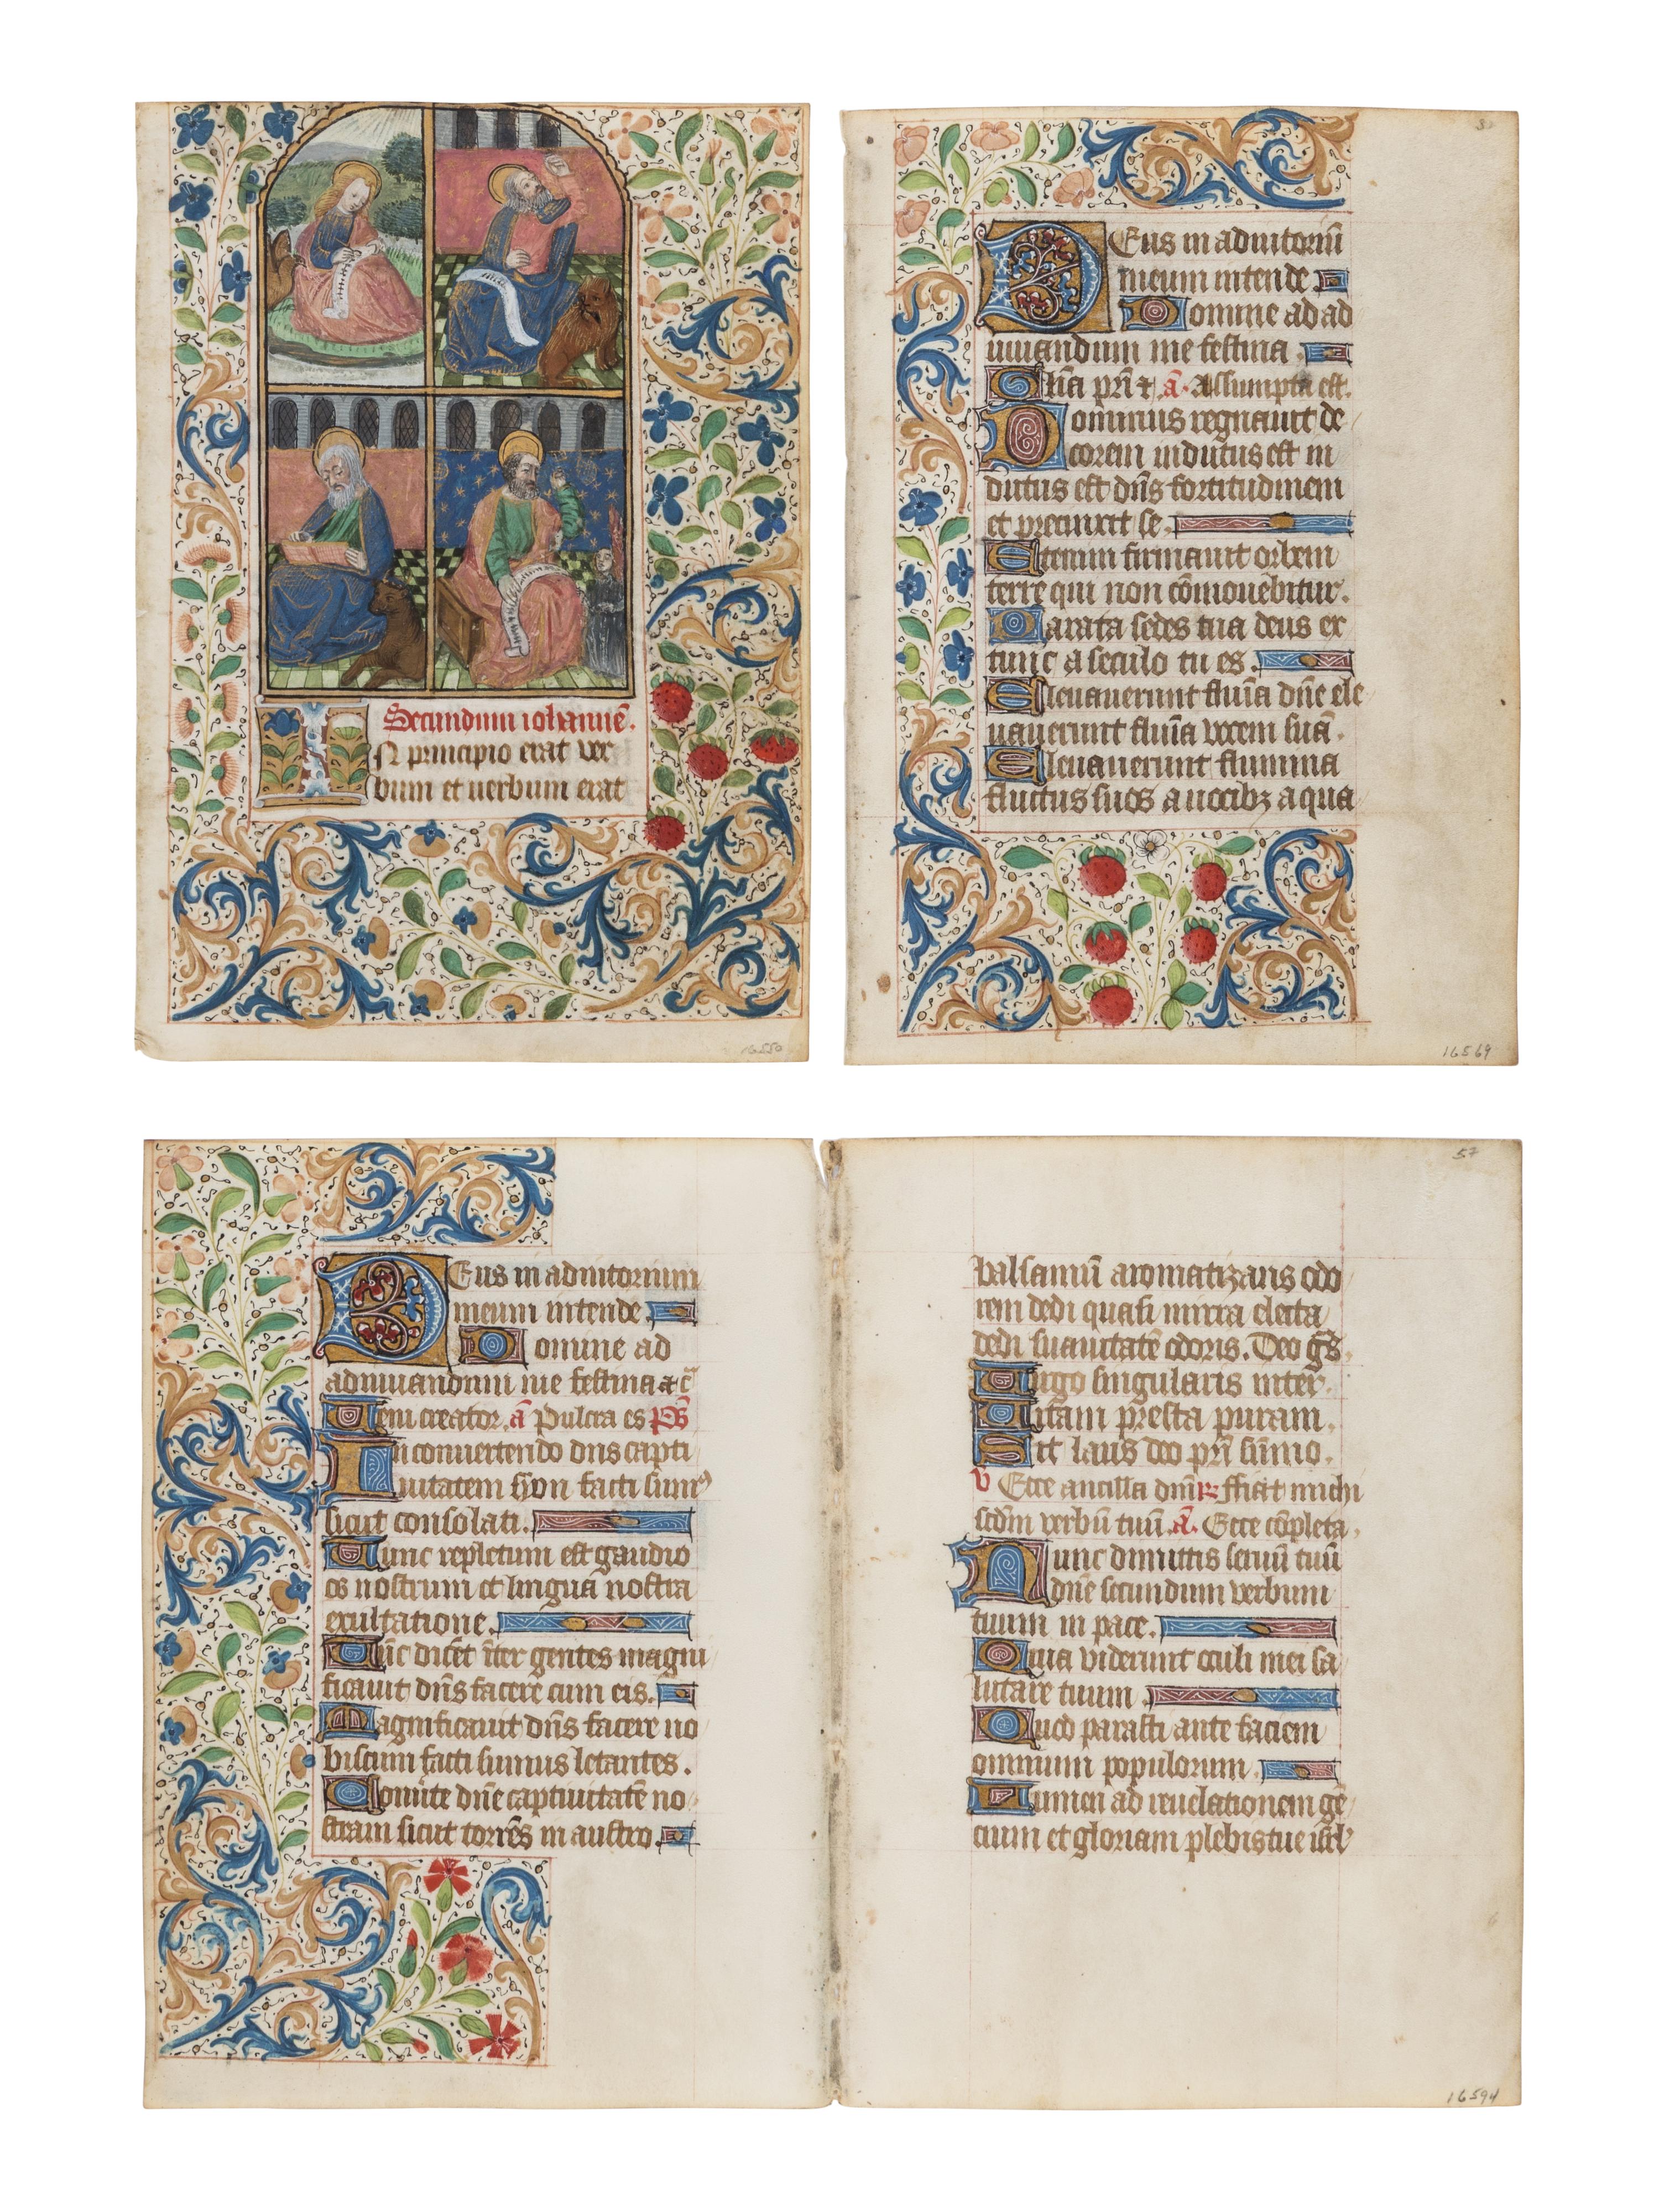 Secundum iohannē.
IN principio erat ver
bum et uerbum erat
16550
DEus in adiutoriū
meum intende
Domine ad ad
iuuandum me festina .
Gl'ia pr̄i ⁊ . ā . Assumpta est.
Dominus regnauit de
corem indutus est in
dutus est dn̄s fortitudinem
et precinxit se .
Etenim firmauit orbem
terre qui non cōmouebitur.
Parata sedes tua deus ex
tunc a seculo tu es .
Eleuauerunt fluīa dn̄e ele
uauerunt fluīa vocem suā .
Eleuauerunt flumina
fluctus suos a uocibꝫ aqua
16569
DEus in adiutorium
meum intende .
Domine ad
adiuuandum me festina ⁊ c̄
Veni creator . ā Pulcra es Ps̄
In conuertendo dn̄s capti
uitatem syon facti sumꝰ
sicut consolati .
Tunc repletum est gaudio
os nostrum et lingua nostra
exultatione .
Tūc dicēt īter gentes magni
ficauit dn̄s facere cum eis .
Magnificauit dn̄s facere no
biscum facti sumus letantes .
Conūte dn̄e captiuitatē no
stram sicut torrēs in austro .
57
balsamū aromatizans odo
rem dedi quasi mirra electa
dedi suauitatē odoris . Deo gr̄s .
Uirgo singularis inter .
Uitam presta puram .
Sit laus deo pr̄i sūmo .
V Ecce ancilla dn̄i R ffiat michi
scd̄m verbū tuū . ā . Ecce cōpleta .
Nunc dimittis seruū tuū
dn̄e secundum verbum
tuum in pace .
Quia viderunt oculi mei sa
lutare tuum .
Quod parasti ante faciem
omnium populorum .
Lumen ad reuelationem gē
cium et gloriam plebis tue isrl'
16594